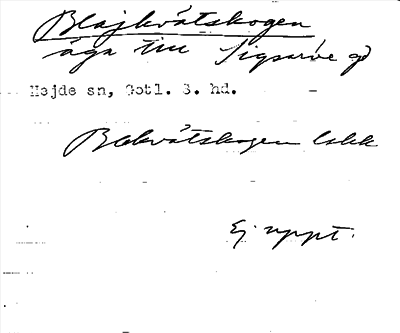 Blajkvätskogen
äga till Sigsarve gd
Hejde sn, Gotl. S. hd.
Blekvätskogen
Ej uppt.